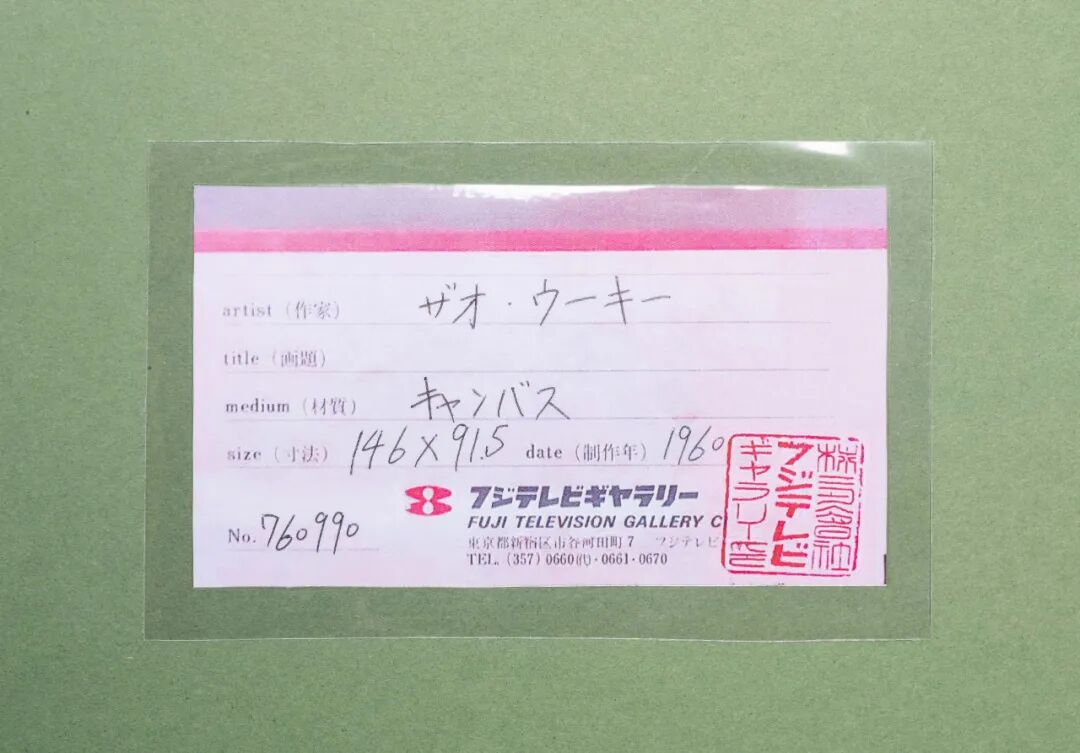 artist (作家) ザオ・ウーキー
title (画題)
medium (材質) キャンバス
size (寸法) 146×91.5 date (制作年) 1960
フジテレビギャラリー
FUJI TELEVISION GALLERY C
No. 760990
東京都新宿区市谷河田町7 フジテレビ
TEL. (357) 0660㈹・0661・0670
株式会社
フジテレビ
ギャラリー